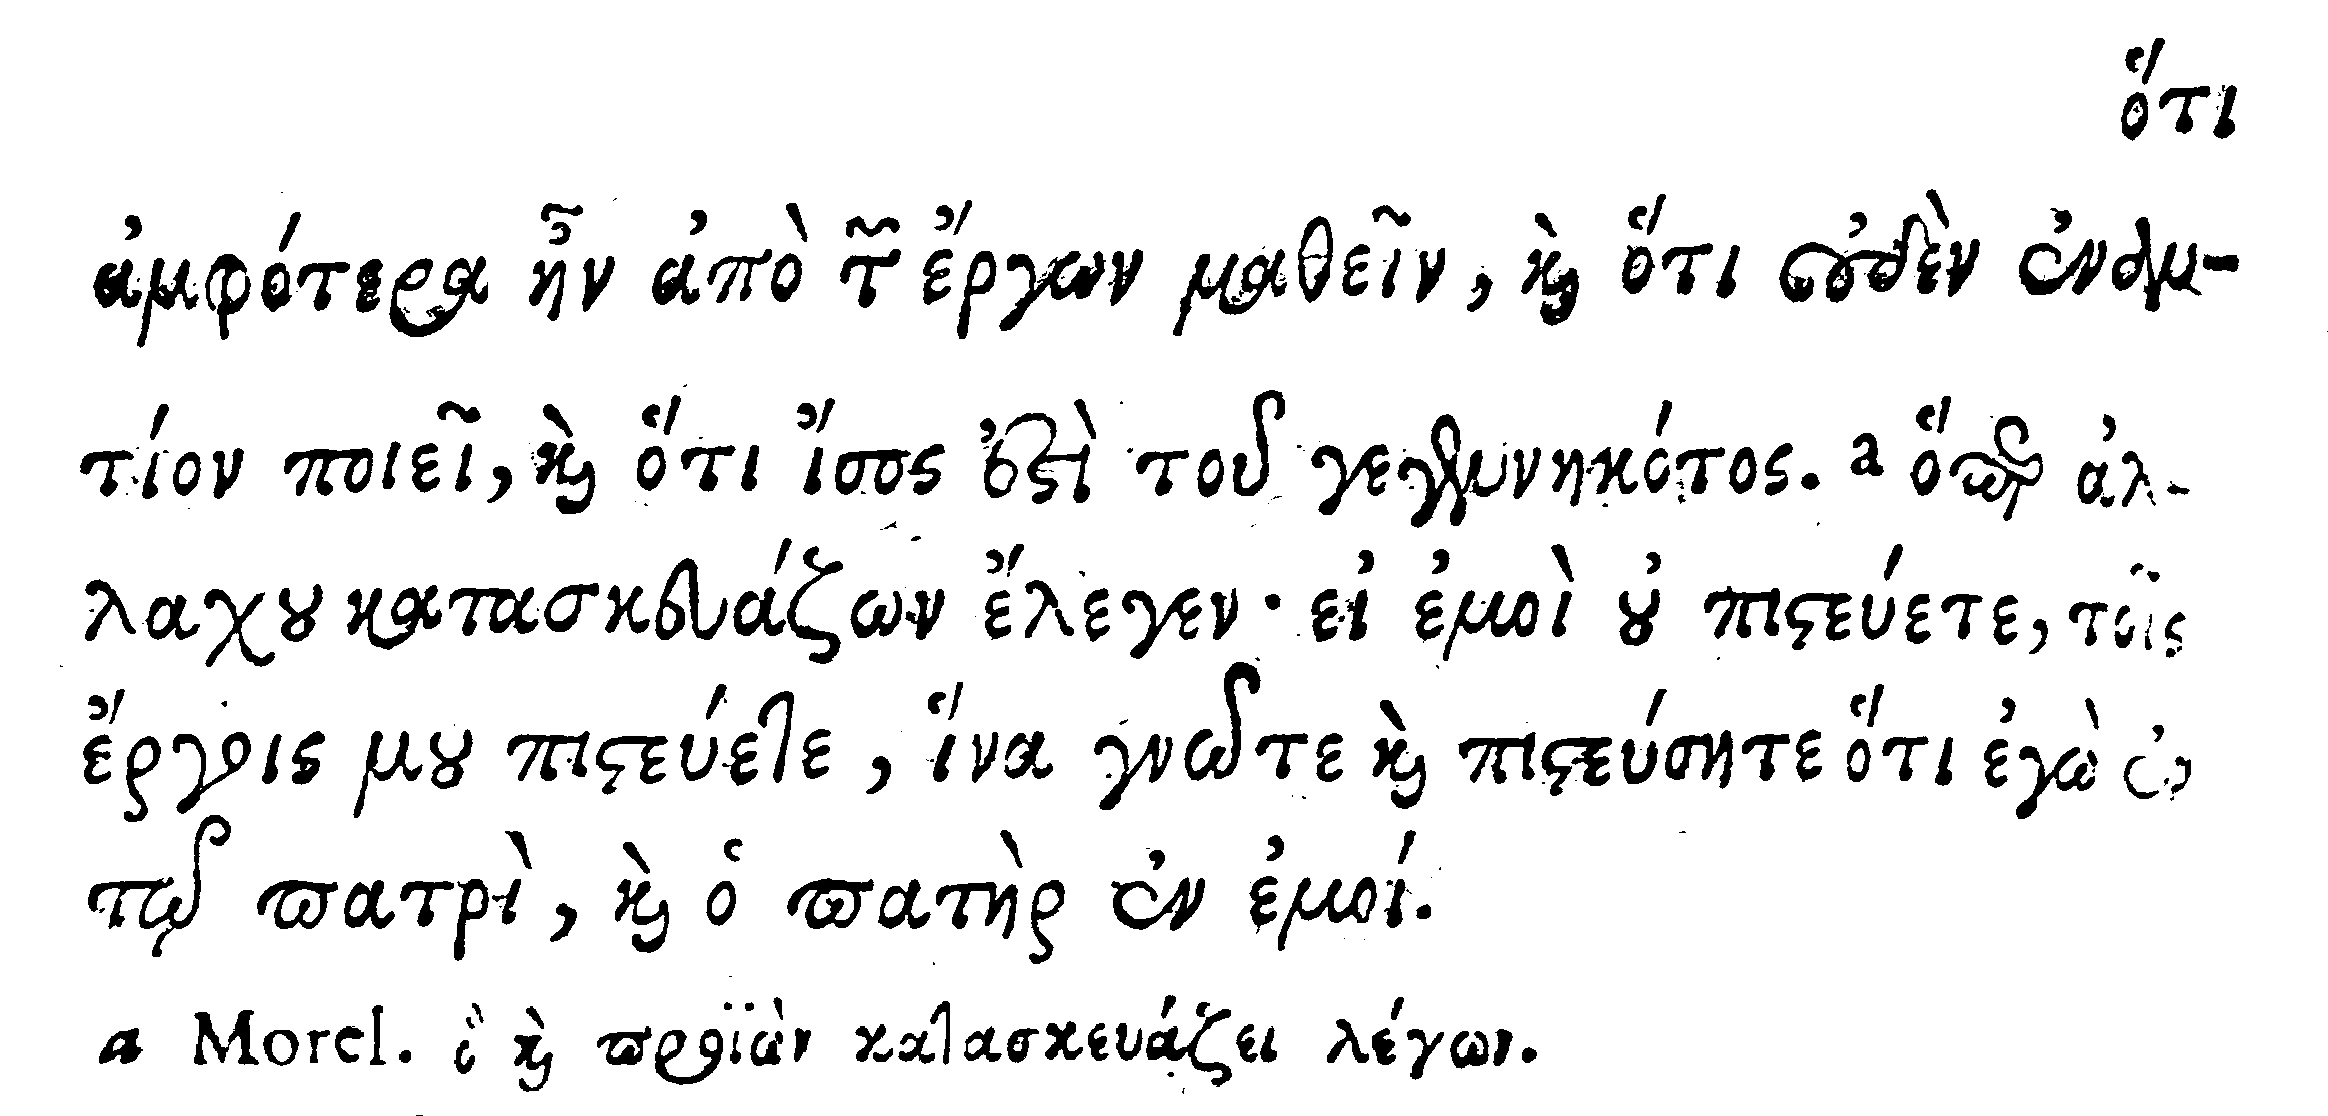 ὅτι
ἀμφότερα ἦν ἀπὸ τῶν ἔργων μαθεῖν, καὶ ὅτι οὐδὲν ἐναν-
τίον ποιεῖ, καὶ ὅτι ἴσος ἐστὶ τοῦ γεγεννηκότος. a ὅπερ ἀλ-
λαχοῦ κατασκευάζων ἔλεγεν· εἰ ἐμοὶ οὐ πιστεύετε, τοῖς
ἔργοις μου πιστεύετε, ἵνα γνῶτε καὶ πιστεύσητε ὅτι ἐγὼ ἐν
τῷ πατρὶ, καὶ ὁ πατὴρ ἐν ἐμοί.
a Morel. ὃ καὶ προϊὼν κατασκευάζει λέγων.